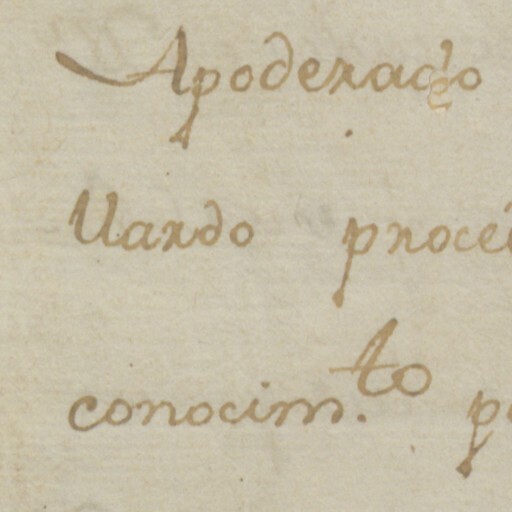 Apoderado
Uardo proce
conocim.to p